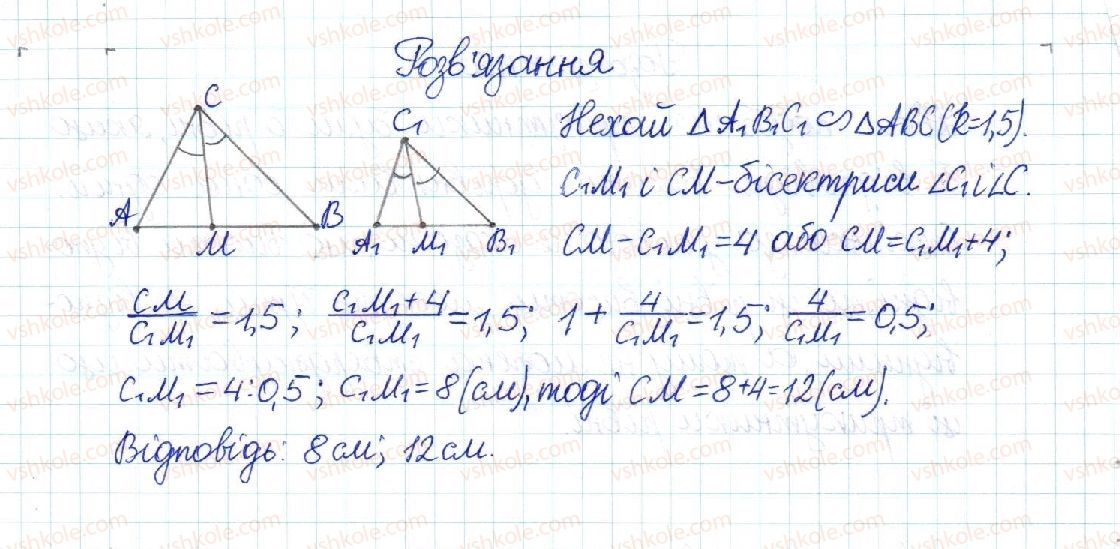 Розв'язання
C
A
M
B
C₁
A₁
M₁
B₁
Нехай △A₁B₁C₁ ∽ △ABC (k=1,5).
C₁M₁ і CM – бісектриси ∠C₁ і ∠C.
CM – C₁M₁ = 4 або CM = C₁M₁ + 4;
CM/C₁M₁ = 1,5; (C₁M₁ + 4)/C₁M₁ = 1,5; 1 + 4/C₁M₁ = 1,5; 4/C₁M₁ = 0,5;
C₁M₁ = 4 : 0,5; C₁M₁ = 8 (см), тоді CM = 8 + 4 = 12 (см).
Відповідь: 8 см; 12 см.
vshkole.com